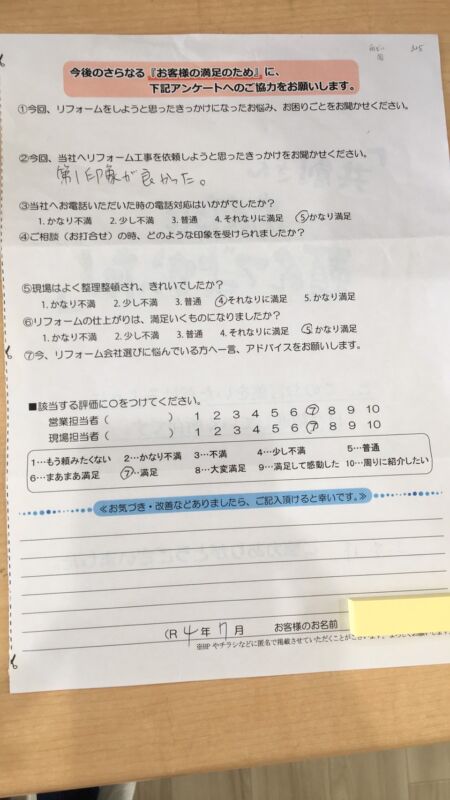 今後のさらなる『お客様の満足のため』に、
下記アンケートへのご協力をお願いします。
①今回、リフォームをしようと思ったきっかけになったお悩み、お困りごとをお聞かせください。
②今回、当社へリフォーム工事を依頼しようと思ったきっかけをお聞かせください。
第1印象が良かった。
③当社へお電話いただいた時の電話対応はいかがでしたか？
1. かなり不満 2. 少し不満 3. 普通 4. それなりに満足 ⑤かなり満足
④ご相談（お打合せ）の時、どのような印象を受けられましたか？
⑤現場はよく整理整頓され、きれいでしたか？
1. かなり不満 2. 少し不満 3. 普通 ④それなりに満足 5. かなり満足
⑥リフォームの仕上がりは、満足いくものになりましたか？
1. かなり不満 2. 少し不満 3. 普通 4. それなりに満足 ⑤かなり満足
⑦今、リフォーム会社選びに悩んでいる方へ一言、アドバイスをお願いします。
■該当する評価に○をつけてください。
営業担当者（ ） 1 2 3 4 5 6 ⑦ 8 9 10
現場担当者（ ） 1 2 3 4 5 6 ⑦ 8 9 10
1…もう頼みたくない 2…かなり不満 3…不満 4…少し不満 5…普通
6…まあまあ満足 ⑦…満足 8…大変満足 9…満足して感動した 10…周りに紹介したい
≪お気づき・改善などありましたら、ご記入頂けると幸いです。≫
（R 4 年 7 月 お客様のお名前
※HPやチラシなどに匿名で掲載させていただくことがございます。